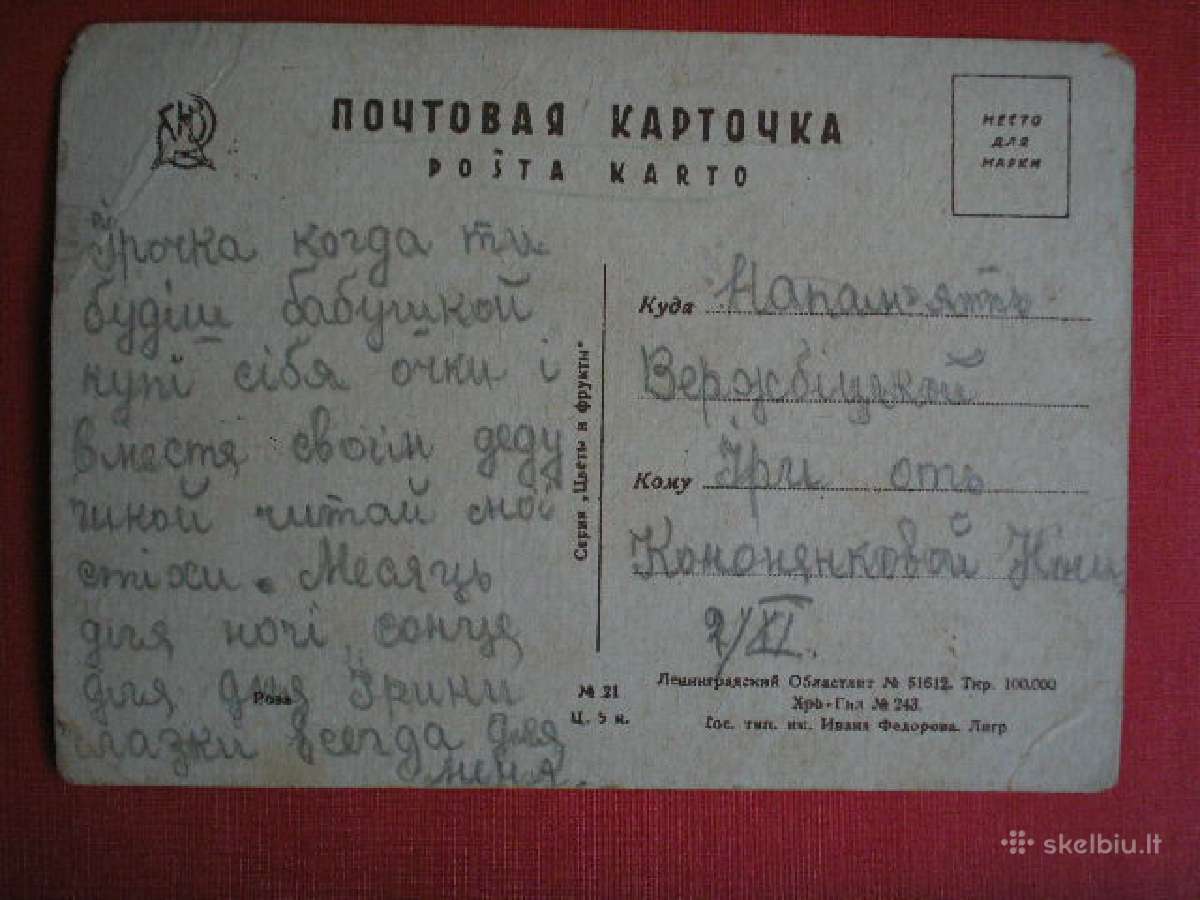 ПОЧТОВАЯ КАРТОЧКА
POŜTA KARTO
МЕСТО
ДЛЯ
МАРКИ
Їрочка когда ти
будіш бабушкой
купі сібя очки і
вместя своїм деду
шкой читай мої
стіхи. Месяць
для ночі, сонце
для дня Їрини
глазки всегда для
меня.
Роза
Серия „Цветы и фрукты"
№ 21
Ц. 5 к.
Куда Напам'ять
Вержбіцкой
Кому Їри оть
Кононянковой
2/XI.
Ленинградский Областлит № 51612. Тир. 100.000
№ 243.
Гос. тип. им. Ивана Федорова. Лнгр
skelbiu.lt